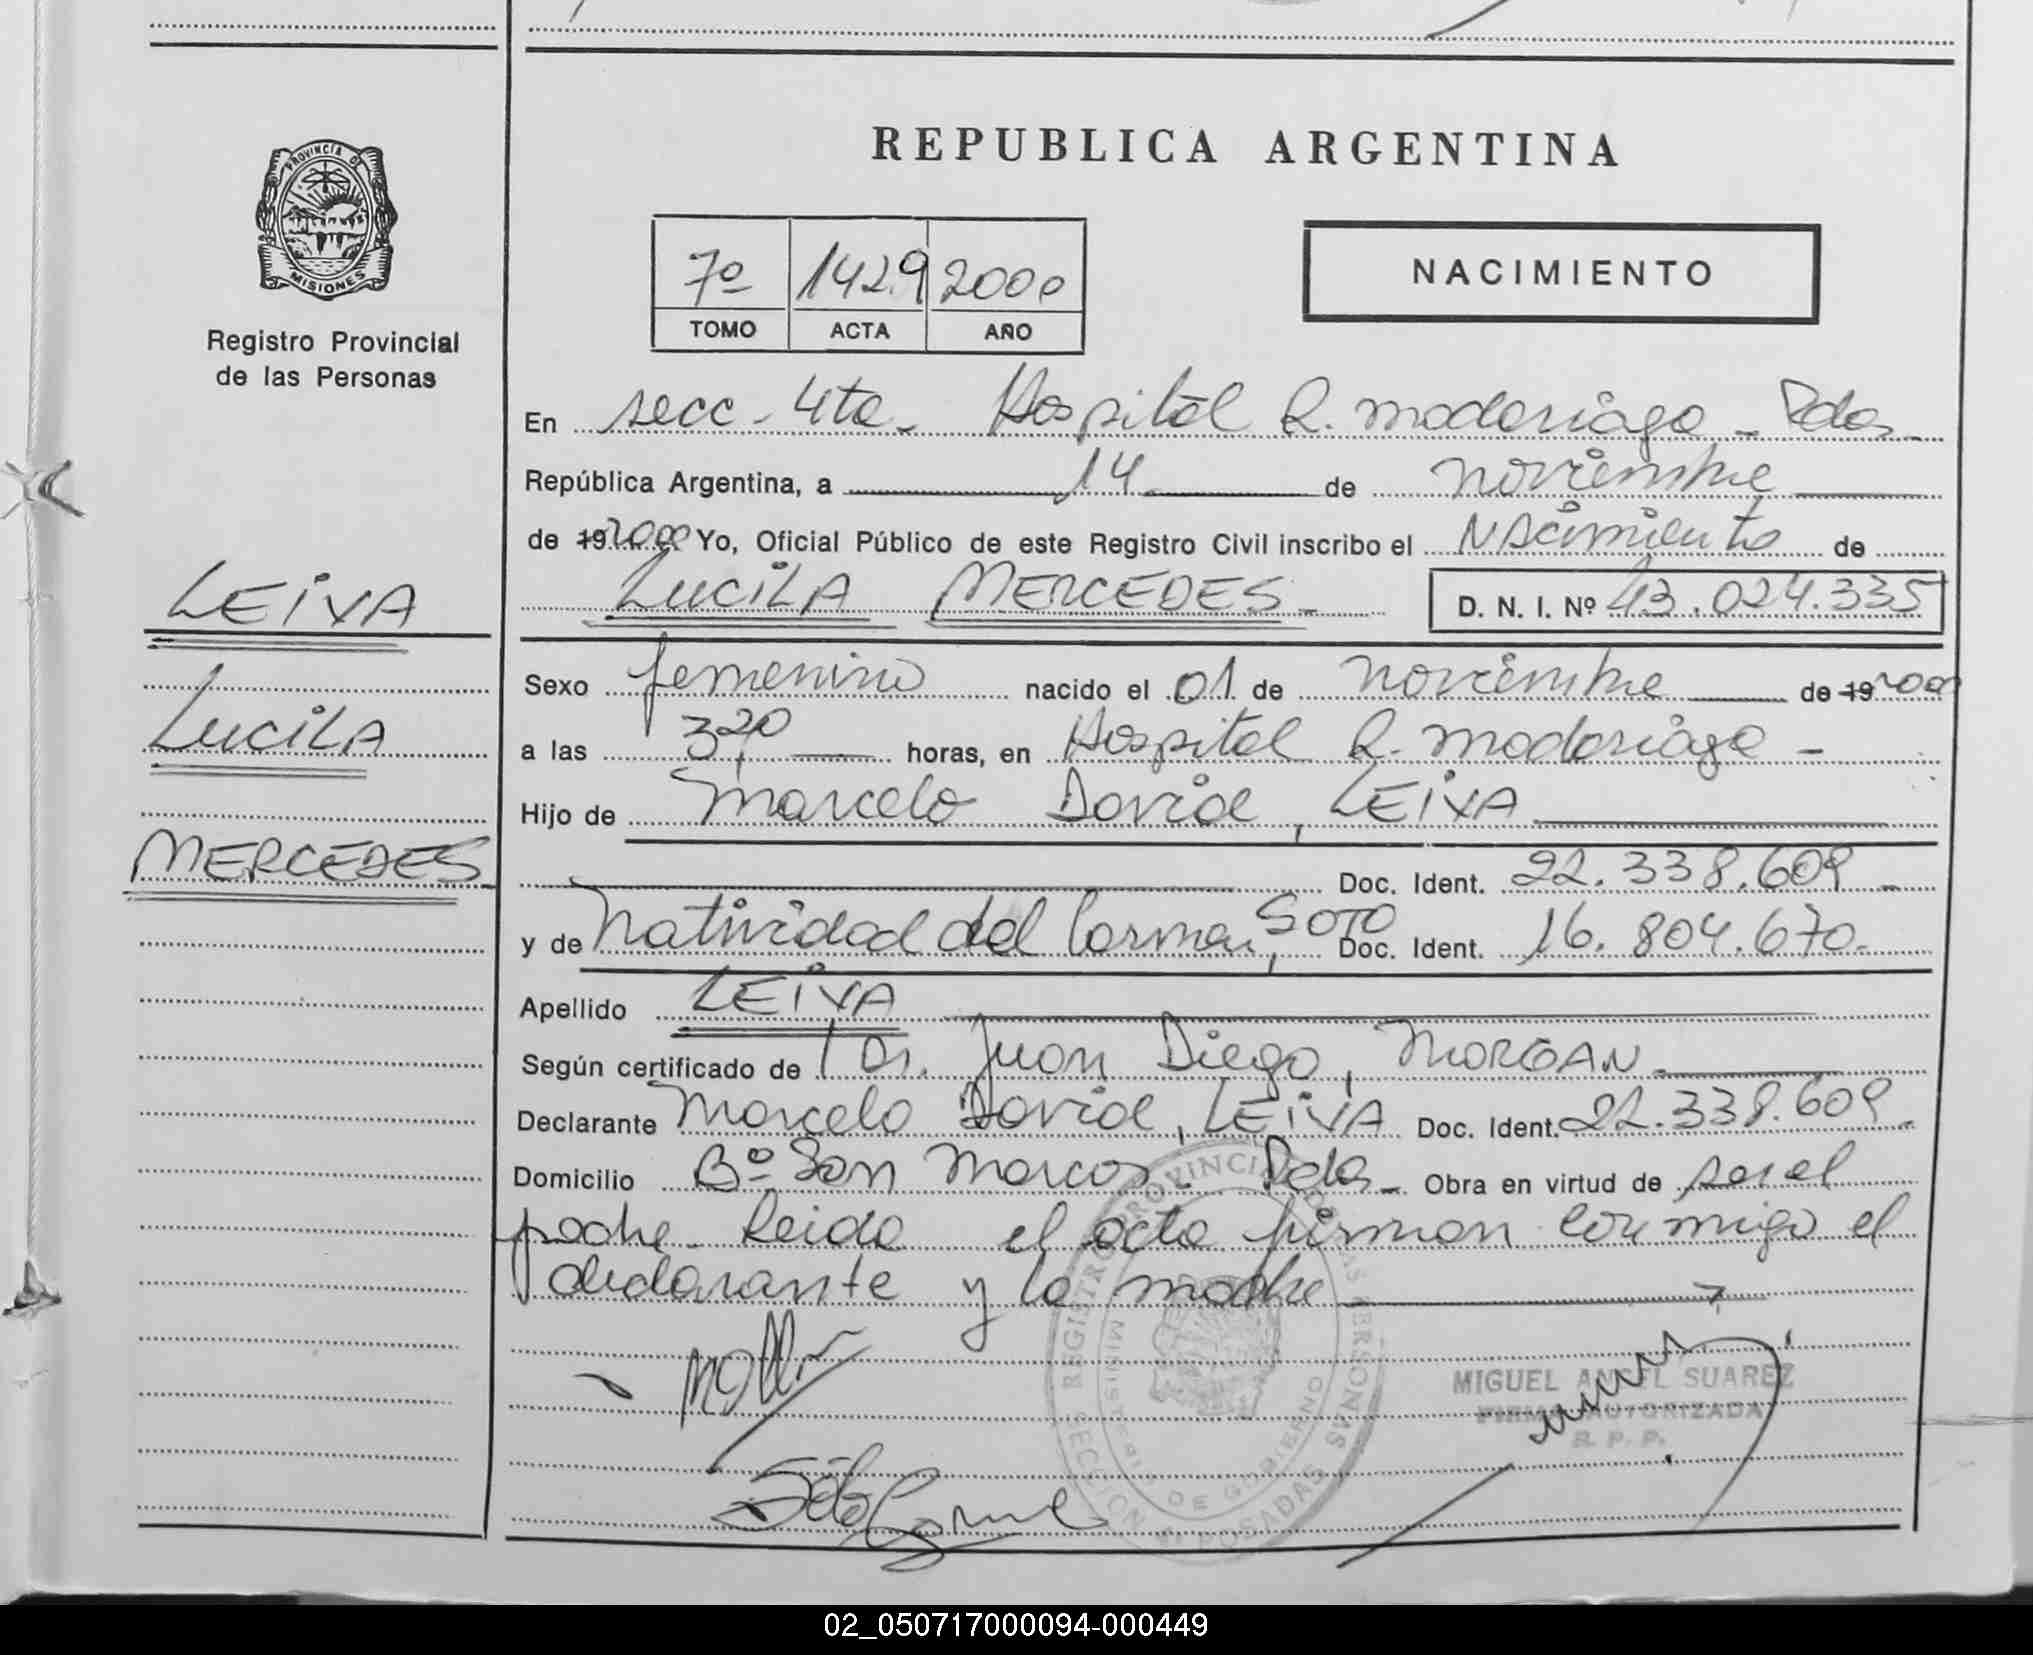 REPUBLICA ARGENTINA
PROVINCIA DE
MISIONES
Registro Provincial
de las Personas
7º 1429 2000
TOMO ACTA AÑO
NACIMIENTO
En secc- 4ta- Hospital R. Madariaga - Pdas-
República Argentina, a 14 de noviembre
de 19 2000 Yo, Oficial Público de este Registro Civil inscribo el Nacimiento de
LUCILA MERCEDES - D. N. I. Nº 43.024.335
LEIVA
LUCILA
MERCEDES
Sexo femenino nacido el 01 de noviembre de 19 2000
a las 3,20 horas, en Hospital R. Madariaga -
Hijo de Marcelo David, LEIVA
Doc. Ident. 22.338.609 -
y de Natividad del Carmen, SOTO Doc. Ident. 16.804.670.
Apellido LEIVA
Según certificado de Dr. Juan Diego, MORGAN
Declarante Marcelo David, LEIVA Doc. Ident. 22.338.609.
Domicilio Bº San Marcos - Pdas - Obra en virtud de ser el
padre - Leida el acta firman conmigo el
declarante y la madre
REGISTRO PROVINCIAL DE LAS PERSONAS
MINISTERIO DE GOBIERNO
SECCION 4ª POSADAS
MIGUEL ANGEL SUAREZ
FIRMA AUTORIZADA
R. P. P.
Soto
02_050717000094-000449